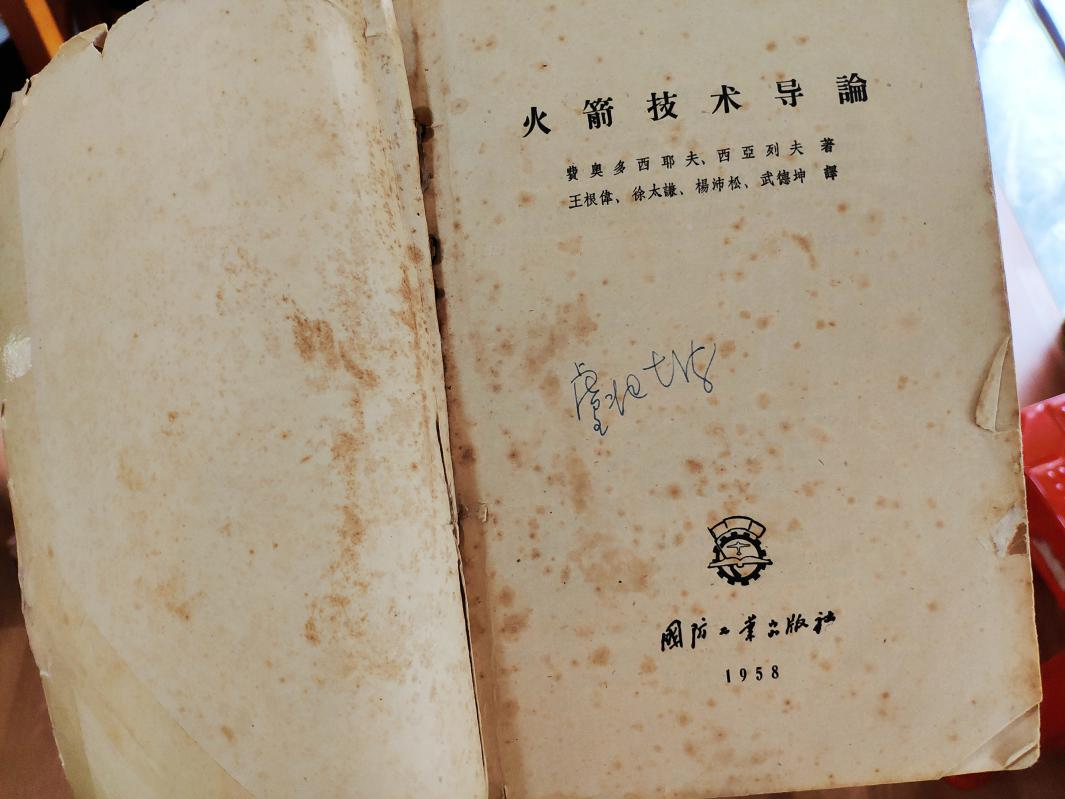 火箭技术导論
費奥多西耶夫、西亞列夫 著
王根偉、徐太謙、楊沛松、武德坤 譯
國防工業出版社
1958